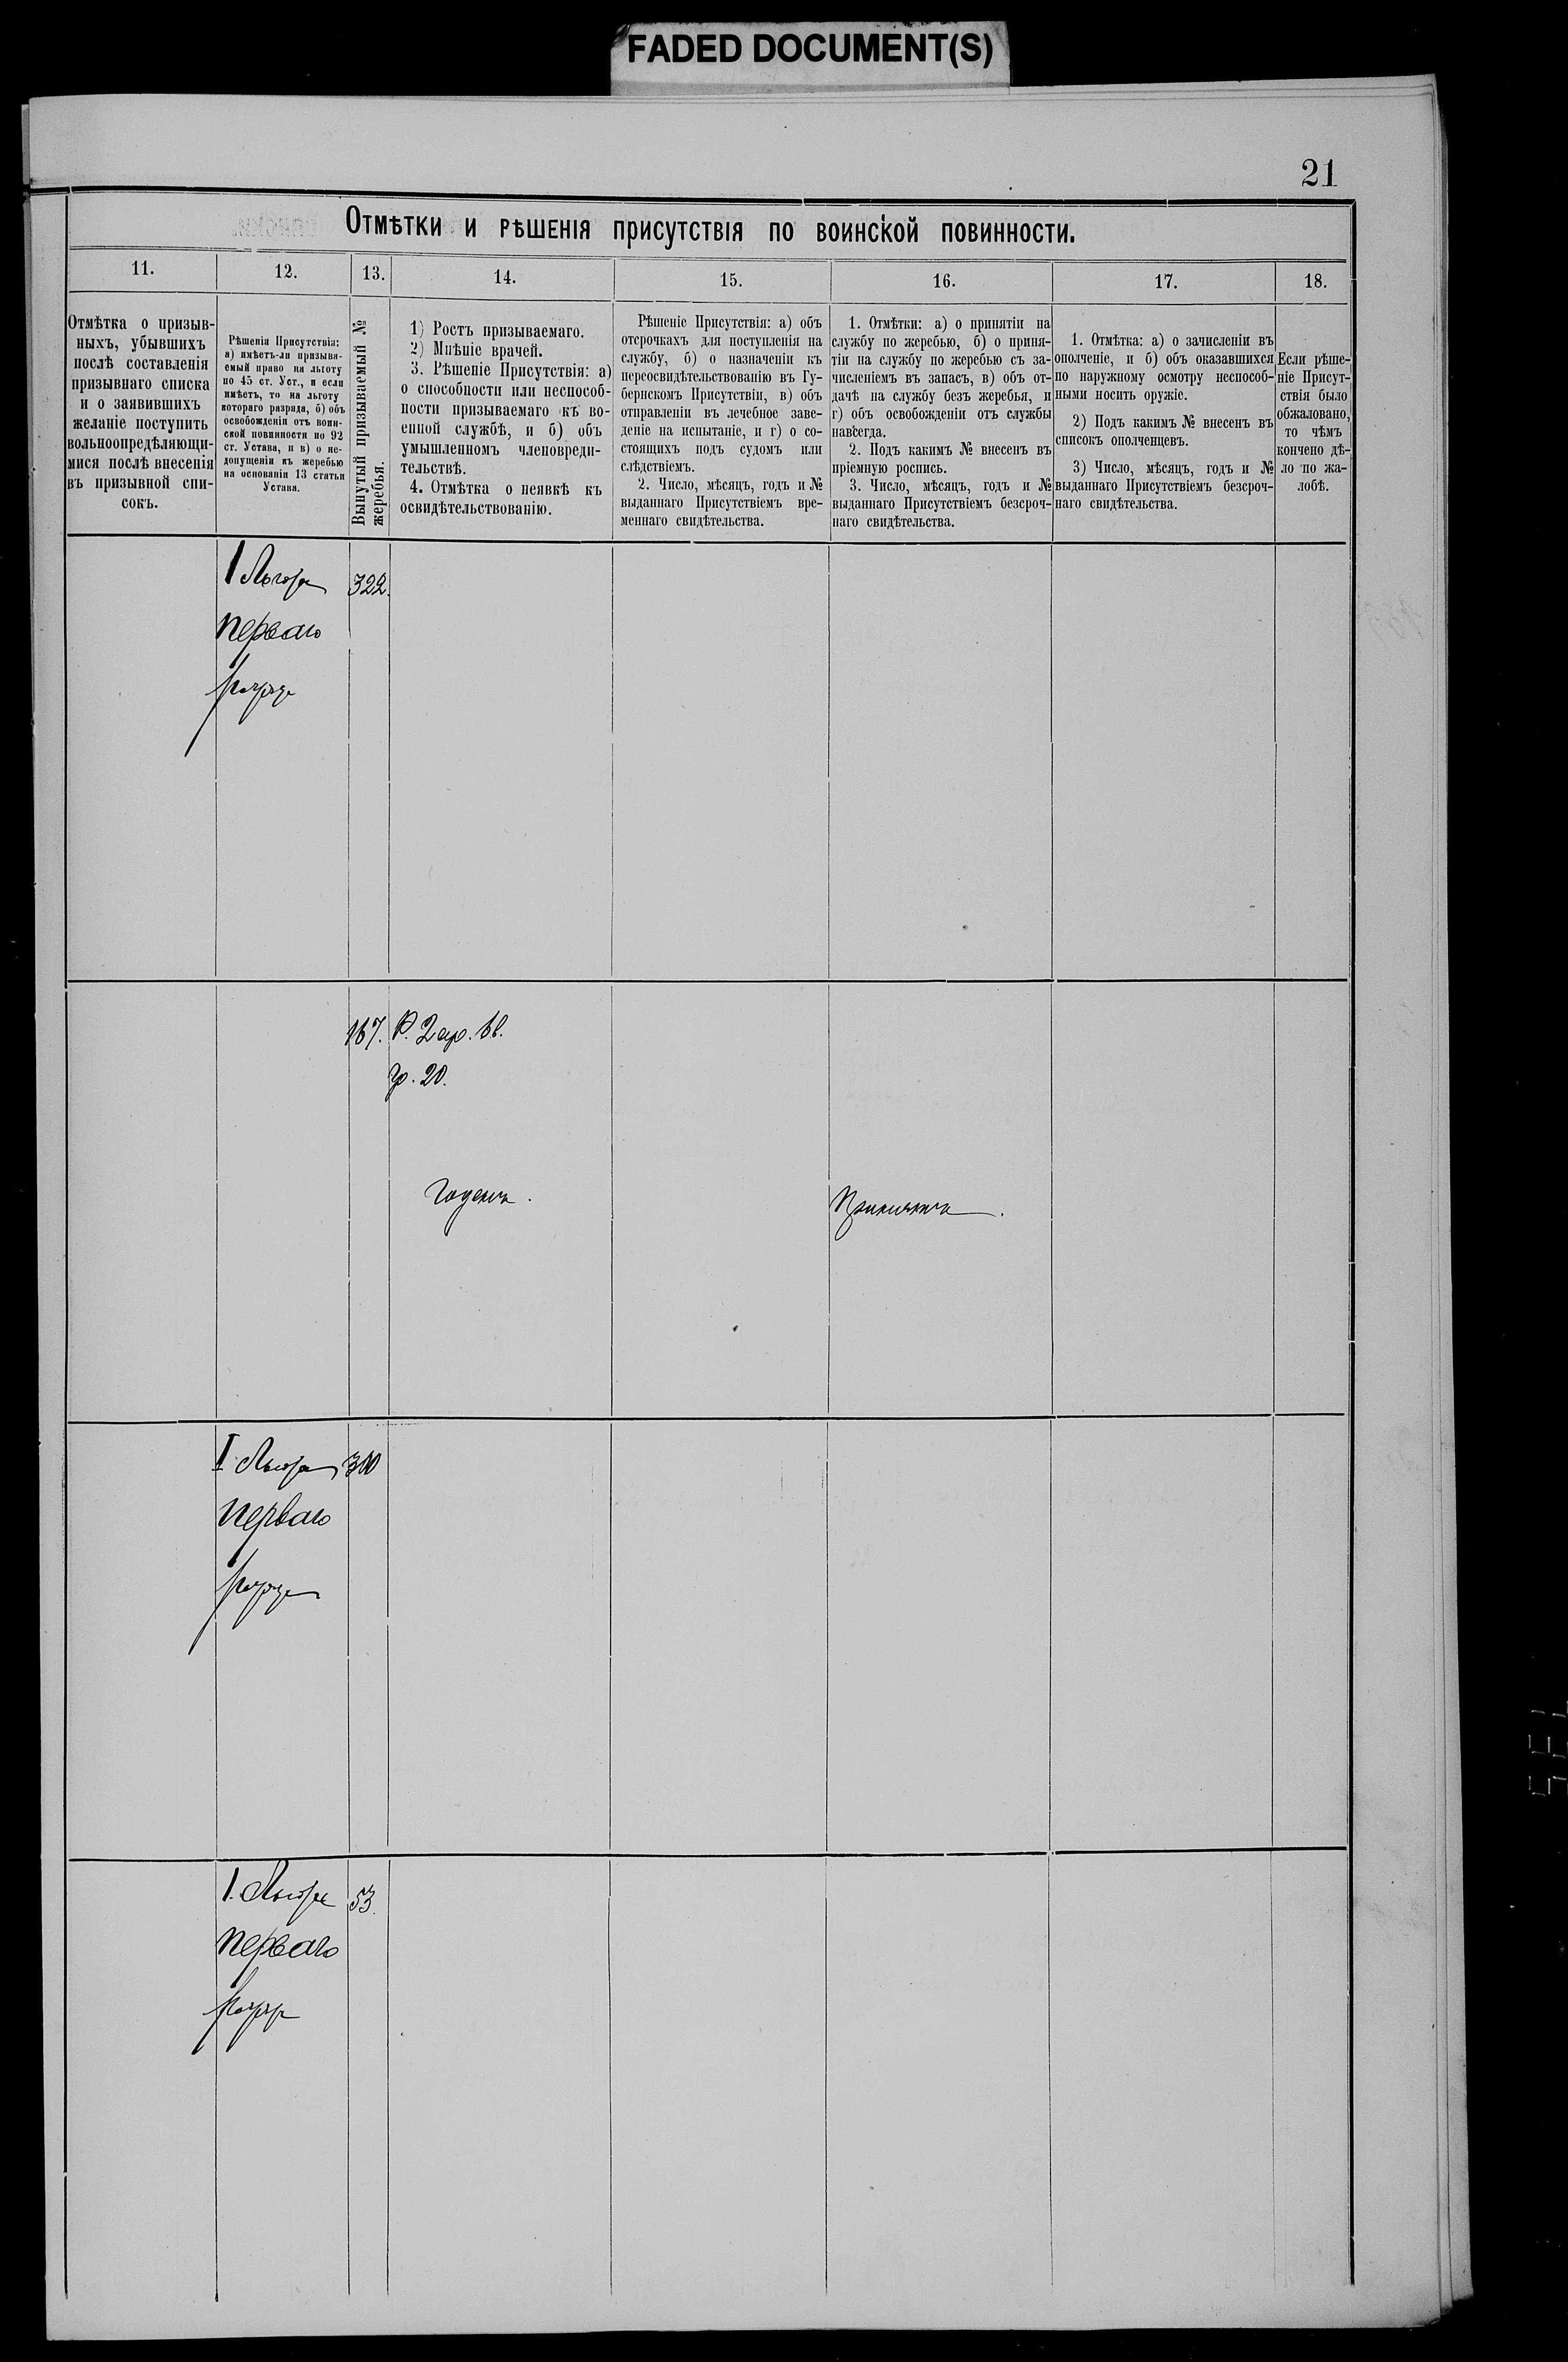 FADED DOCUMENT(S)
21
Отмѣтки и рѣшенія присутствія по воинской повинности.
11. 12. 13. 14. 15. 16. 17. 18.
Отмѣтка о призыв-
ныхъ, убывшихъ
послѣ составленія
призывнаго списка
и о заявившихъ
желаніе поступить
вольноопредѣляющи-
мися послѣ внесенія
въ призывной спи-
сокъ.
Рѣшенія Присутствія:
а) имѣетъ-ли призыва-
емый право на льготу
по 45 ст. Уст., и если
имѣетъ, то на льготу
котораго разряда, б) объ
освобожденіи отъ воин-
ской повинности по 92
ст. Устава, и в) о не-
допущеніи къ жеребью
на основаніи 13 статьи
Устава.
Вынутый призываемый №
жеребья.
1) Ростъ призываемаго.
2) Мнѣніе врачей.
3. Рѣшеніе Присутствія: а)
о способности или неспособ-
ности призываемаго къ во-
енной службѣ, и б) объ
умышленномъ членовреди-
тельствѣ.
4. Отмѣтка о неявкѣ къ
освидѣтельствованію.
Рѣшеніе Присутствія: а) объ
отсрочкахъ для поступленія на
службу, б) о назначеніи къ
переосвидѣтельствованію въ Гу-
бернскомъ Присутствіи, в) объ
отправленіи въ лечебное заве-
деніе на испытаніе, и г) о со-
стоящихъ подъ судомъ или
слѣдствіемъ.
2. Число, мѣсяцъ, годъ и №
выданнаго Присутствіемъ вре-
меннаго свидѣтельства.
1. Отмѣтки: а) о принятіи на
службу по жеребью, б) о приня-
тіи на службу по жеребью съ за-
численіемъ въ запасъ, в) объ от-
дачѣ на службу безъ жеребья, и
г) объ освобожденіи отъ службы
навсегда.
2. Подъ какимъ № внесенъ въ
пріемную роспись.
3. Число, мѣсяцъ, годъ и №
выданнаго Присутствіемъ безсроч-
наго свидѣтельства.
1. Отмѣтка: а) о зачисленіи въ
ополченіе, и б) объ оказавшихся
по наружному осмотру неспособ-
ными носить оружіе.
2) Подъ какимъ № внесенъ въ
списокъ ополченцевъ.
3) Число, мѣсяцъ, годъ и №
выданнаго Присутствіемъ безсроч-
наго свидѣтельства.
Если рѣше-
ніе Присут-
ствія было
обжаловано,
то чѣмъ
кончено дѣ-
ло по жа-
лобѣ.
I Льгота 322.
перваго
разряда
167. Р. 2 ар. 6 в.
гр. 20.
Годенъ.
Принятъ.
I Льгота 300
перваго
разряда
I. Льгота 53.
перваго
разряда